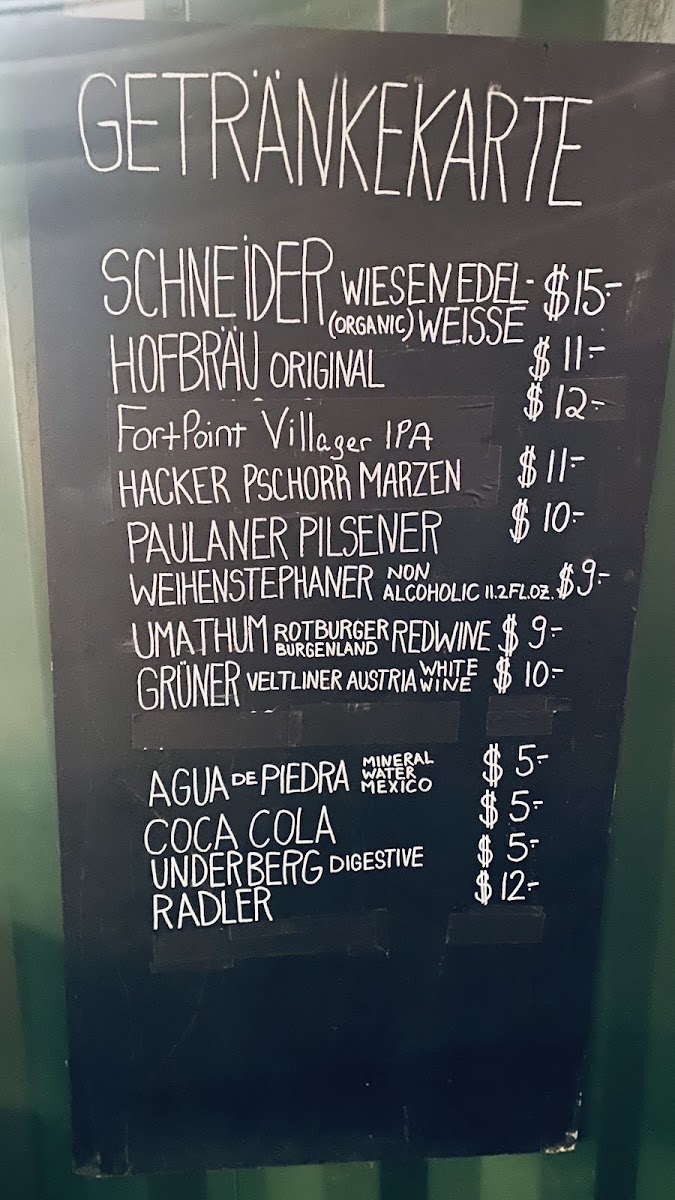 GETRÄNKEKARTE
SCHNEIDER WIESEN EDEL- $15.-
(ORGANIC) WEISSE
HOFBRÄU ORIGINAL $11.-
FortPoint Villager IPA $12.-
HACKER PSCHORR MARZEN $11.-
PAULANER PILSENER $10.-
WEIHENSTEPHANER NON ALCOHOLIC 11.2FL.OZ. $9.-
UMATHUM ROTBURGER BURGENLAND REDWINE $9.-
GRÜNER VELTLINER AUSTRIA WHITE WINE $10.-
AGUA DE PIEDRA MINERAL WATER MEXICO $5.-
COCA COLA $5.-
UNDERBERG DIGESTIVE $5.-
RADLER $12.-